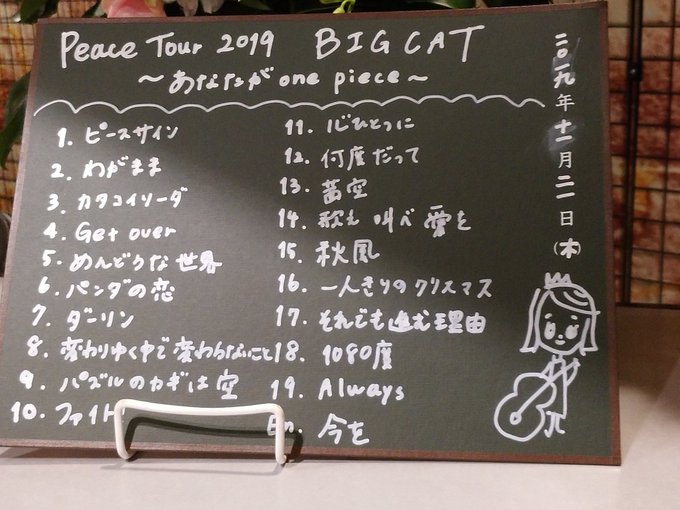 Peace Tour 2019 BIG CAT
～あなたが one piece～
1. ピースサイン
2. わがまま
3. カタコイソーダ
4. Get over
5. めんどうな世界
6. パンダの恋
7. ダーリン
8. 変わりゆく中で変わらないこと
9. パズルのカギは空
10. ファイト
11. 心ひとつに
12. 何度だって
13. 茜空
14. 歌え 叫べ 愛を
15. 秋風
16. 一人きりのクリスマス
17. それでも進む理由
18. 1080度
19. Always
En. 今を
二〇一九年十一月二一日(木)